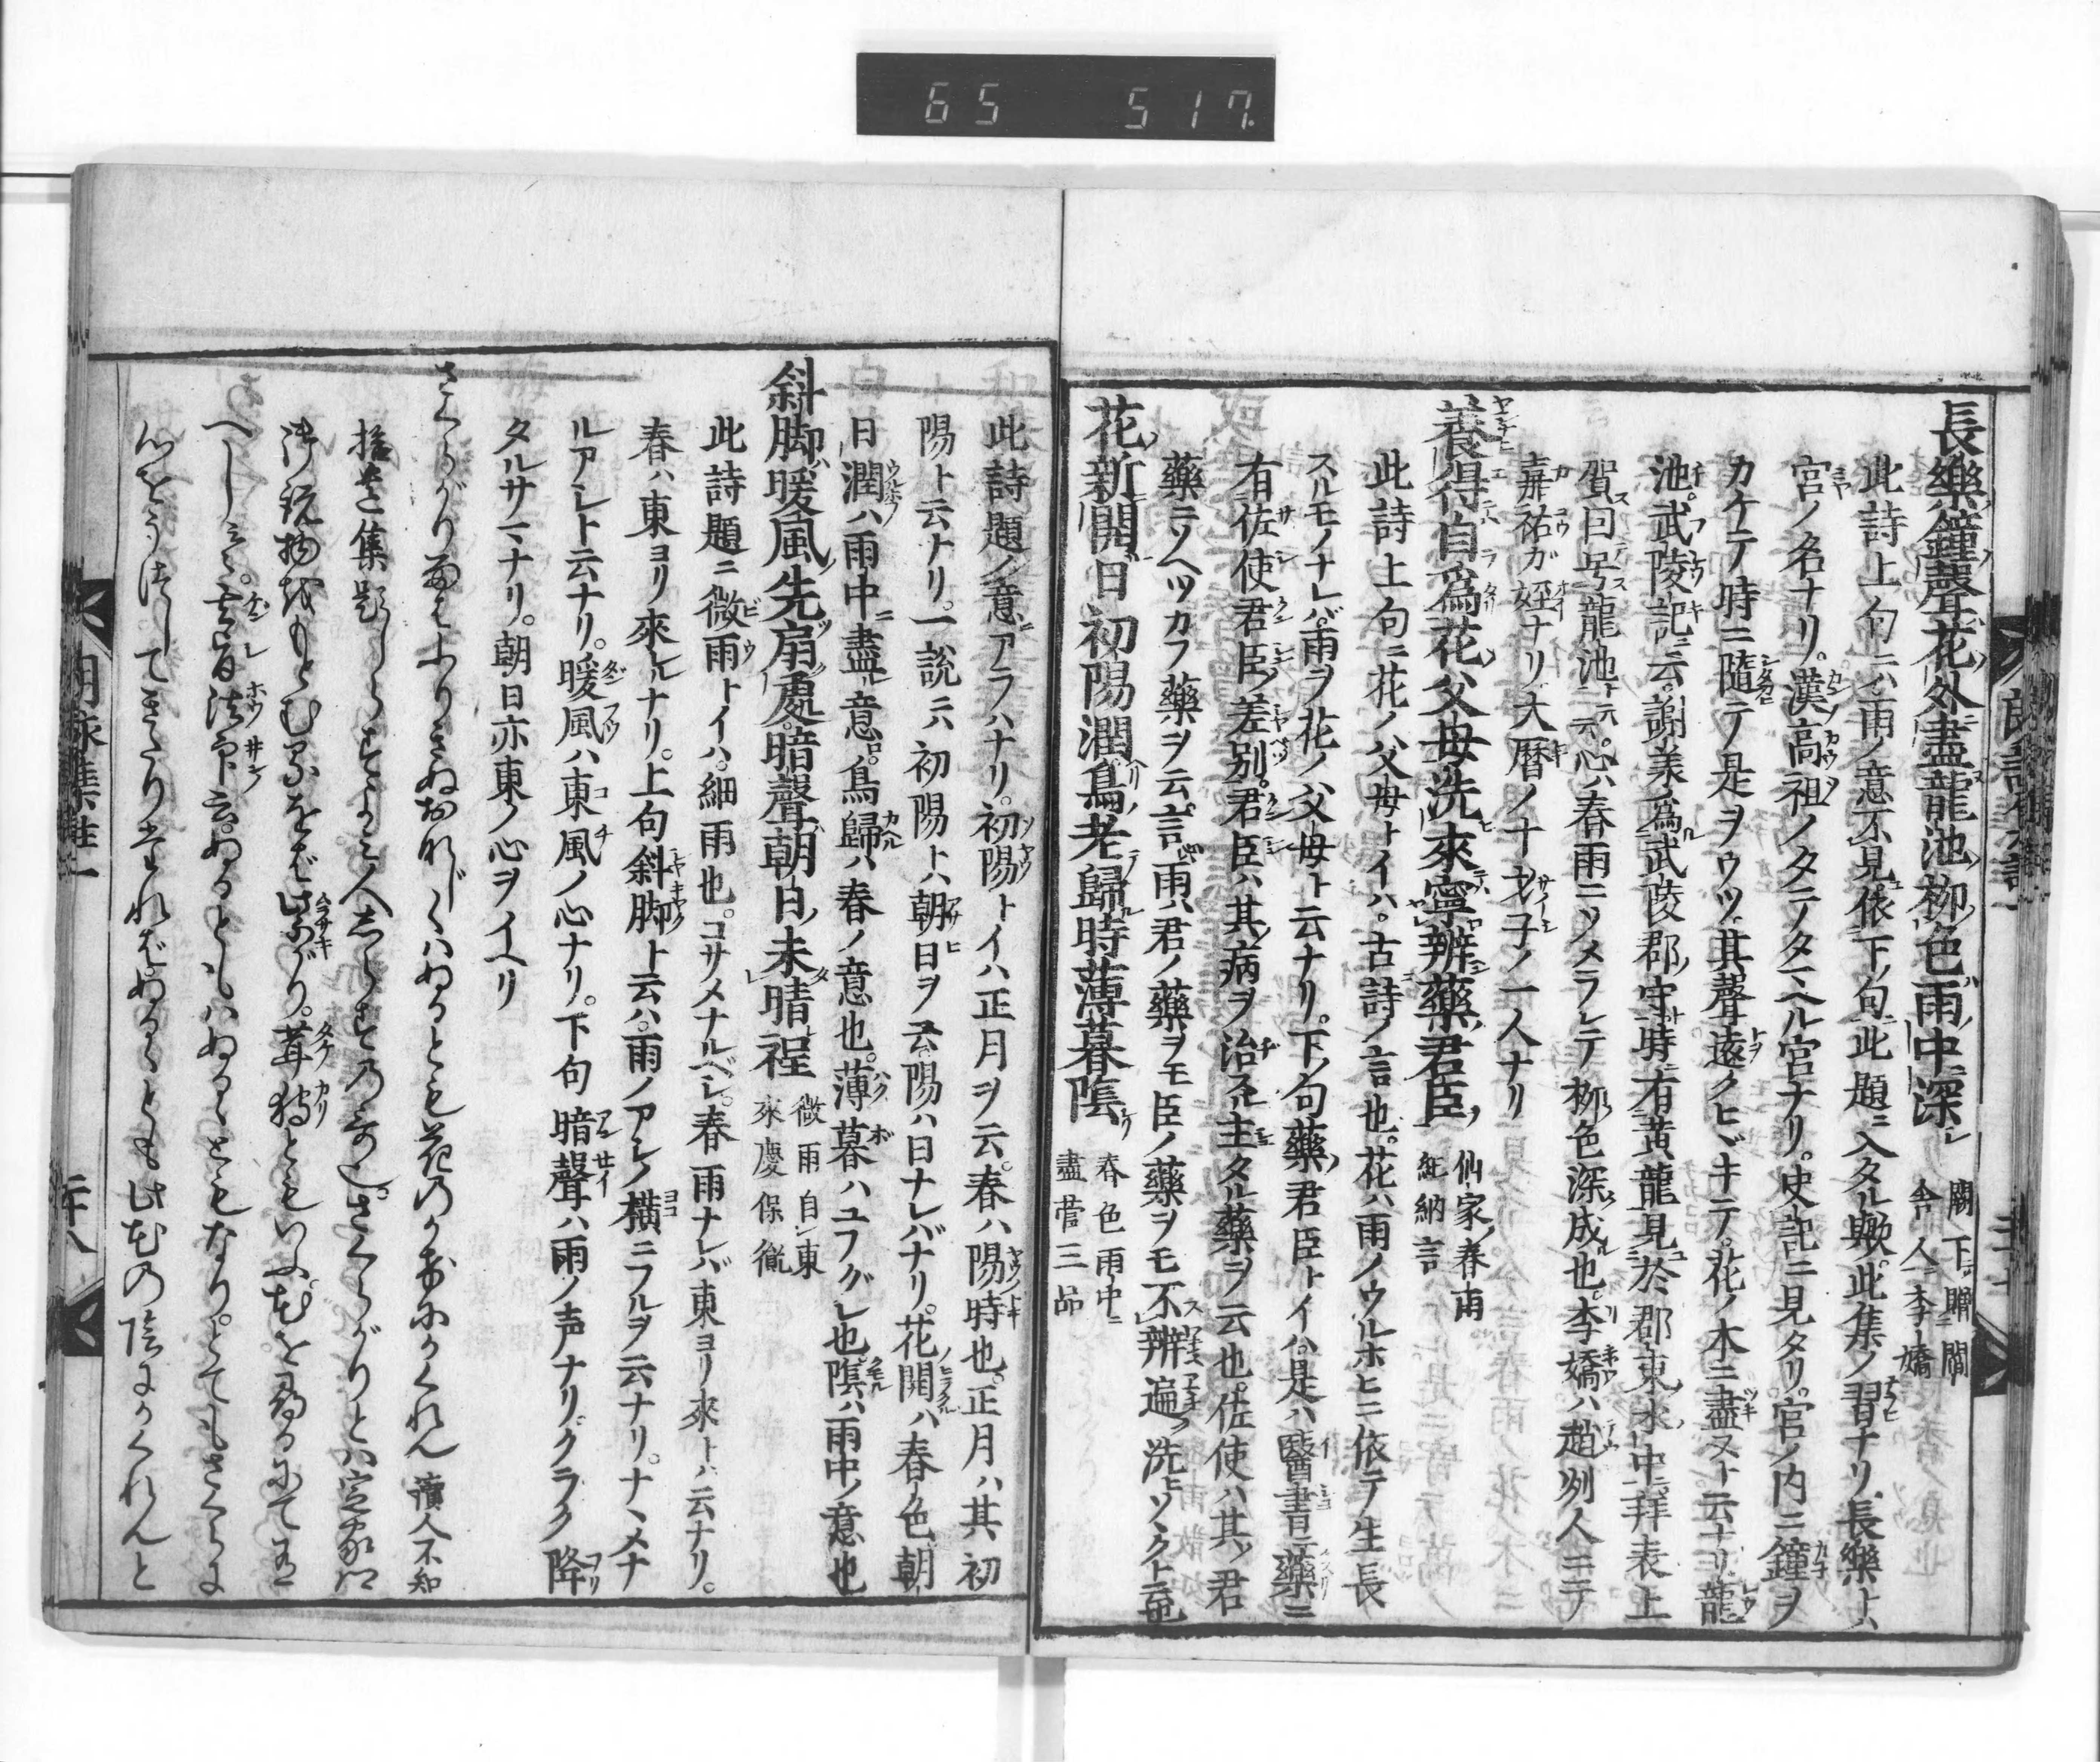 65 517
長樂鐘聲花外盡龍池柳色雨中深 闕下贈閻舍人 李嶠
此詩上句ニハ雨ノ意不見依下ノ句ニ此題ニ入タル歟此集ノ習ナリ長樂ト八
宮ノ名ナリ漢高祖ノタテノタマヘル宮ナリ史記ニ見タリ宮ノ内ニ鐘ヲ
カケテ時ニ隨テ是ヲウツ其聲遠クヒヾキテ花ノ木ニ盡ヌト云ナリ龍
池武陵記ニ云謝羕爲武陵郡守時有黃龍見於郡東水中拜表上
賀曰号龍池ト云心ハ春雨ニソメラレテ柳色深成也李嶠ハ趙州人ニテ
嘉祐ガ姪ナリ大曆ノ十才子ノ一人ナリ
養得自爲花父母洗來寧辨藥君臣 仙家春雨 紀納言
此詩上句ニ花ノ父母トイハ古詩ノ言也花ハ雨ノウルホヒニ依テ生長
スルモノナレバ雨ヲ花ノ父母ト云ナリ下ノ句藥君臣トイハ是ハ醫書ニ藥ニ
有佐使君臣差別君臣ハ其病ヲ治スル主タル藥ヲ云也佐使ハ其ノ君
藥ニソヘツカフ藥ヲ云言雨ハ君ノ藥ヲモ臣ノ藥ヲモ不辨遍ク洗ヒソヽクト云也
花新開日初陽潤鳥老歸時薄暮陰 春色雨中盡 菅三品
此詩題ノ意アラハナリ初陽トイハ正月ヲ云春ハ陽時也正月ハ其初
陽ト云ナリ一說ニハ初陽トハ朝日ヲ云陽ハ日ナレバナリ花開ハ春色朝
日潤ハ雨中盡意也鳥歸ハ春ノ意也薄暮ハユフグレ也陰ハ雨中ノ意也
斜脚暖風先扇處暗聲朝日未晴程 微雨自東來 慶保胤
此詩題ニ微雨トイハ細雨也コサメナルベシ春雨ナレバ東ヨリ來トハ云ナリ
春ハ東ヨリ來ルナリ上句斜脚ト云ハ雨ノアシノ橫ニフルヲ云ナリナヽメナ
ルアシト云ナリ暖風ハ東風ノ心ナリ下句暗聲ハ雨ノ声ナリクラク降
タルサマナリ朝日亦東ノ心ヲイヘリ
さくらがり雨はふりきぬおなじくはぬるとも花のかげにかくれん 讀人不知
拾遺集題しらずよみ人しらずの哥也さくらがりとは定家卿
へししミ
心をうつしてきたりたればぬるゝとも此花の陰にかくれんと